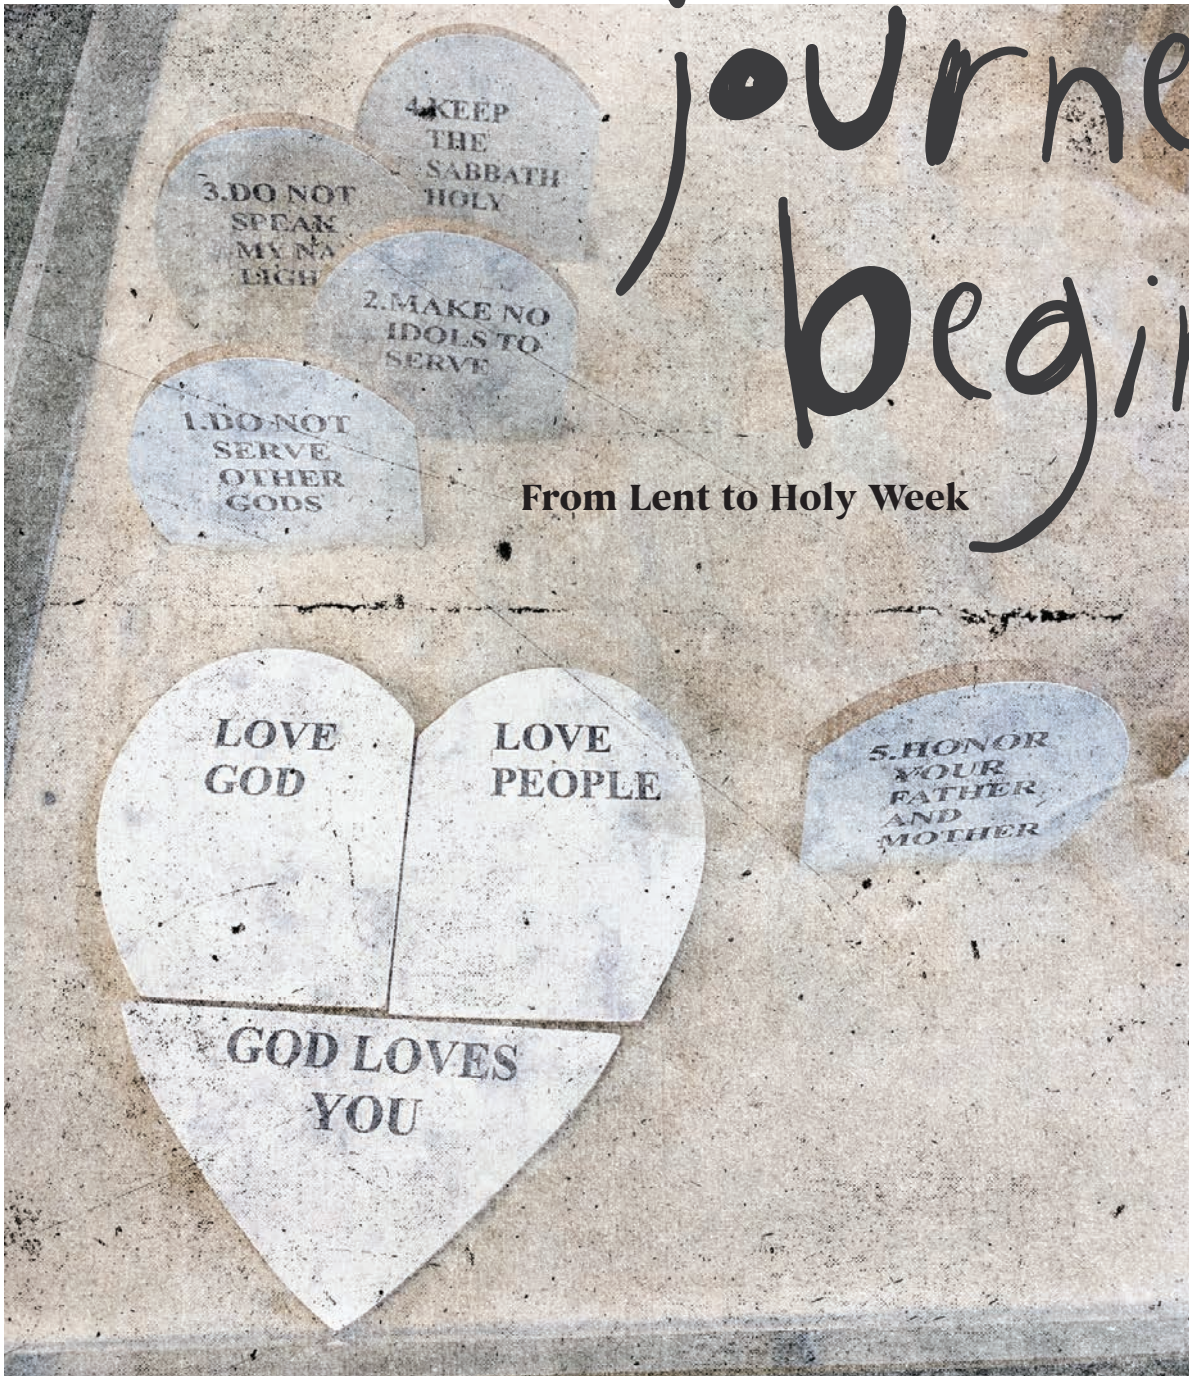 journe
begi
From Lent to Holy Week
4.KEEP
THE
SABBATH
HOLY
3.DO NOT
SPEAK
MY NA
LIGH
2.MAKE NO
IDOLS TO
SERVE
1.DO NOT
SERVE
OTHER
GODS
LOVE
GOD
LOVE
PEOPLE
GOD LOVES
YOU
5.HONOR
YOUR
FATHER
AND
MOTHER